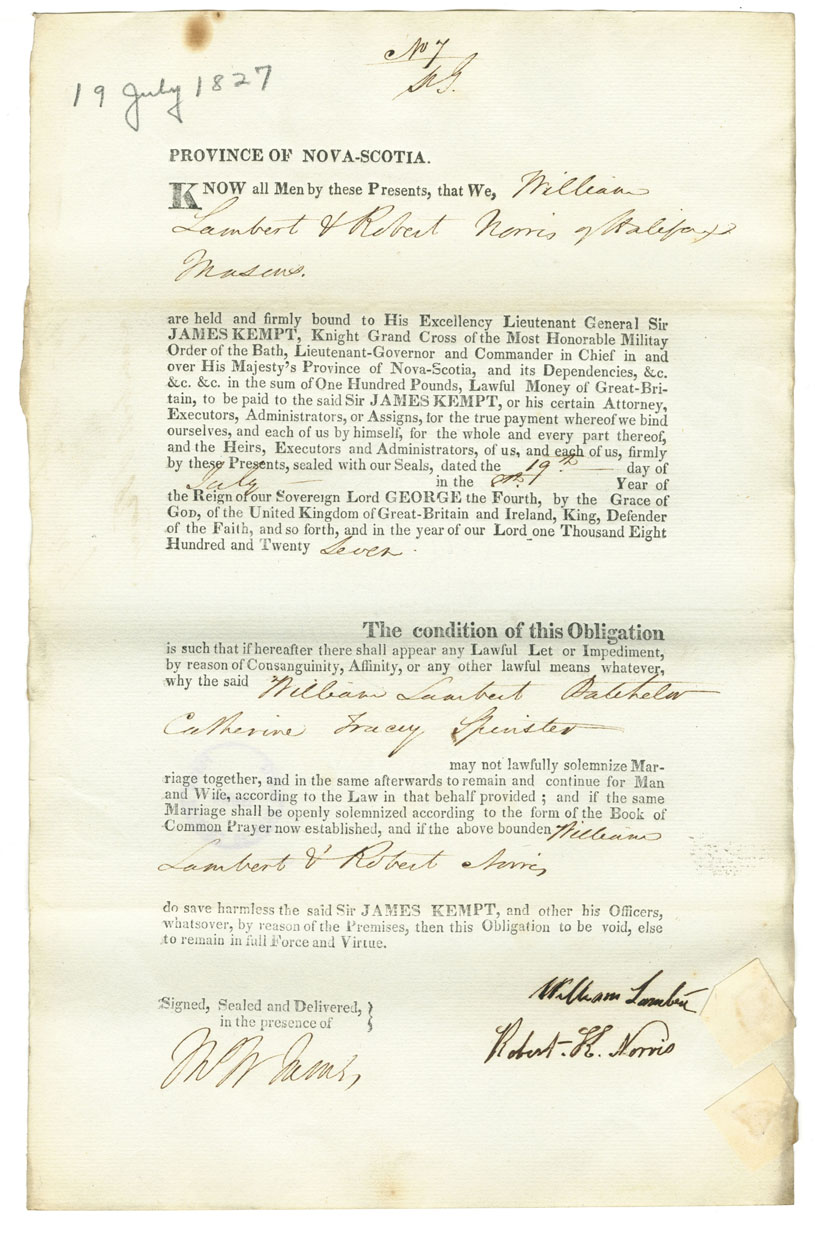 No 7
19 July 1827
PROVINCE OF NOVA-SCOTIA.
KNOW all Men by these Presents, that We, William
Lambert & Robert Norris of Halifax
Masons.
are held and firmly bound to His Excellency Lieutenant General Sir
JAMES KEMPT, Knight Grand Cross of the Most Honorable Militay
Order of the Bath, Lieutenant-Governor and Commander in Chief in and
over His Majesty's Province of Nova-Scotia, and its Dependencies, &c.
&c. &c. in the sum of One Hundred Pounds, Lawful Money of Great-Bri-
tain, to be paid to the said Sir JAMES KEMPT, or his certain Attorney,
Executors, Administrators, or Assigns, for the true payment whereof we bind
ourselves, and each of us by himself, for the whole and every part thereof,
and the Heirs, Executors and Administrators, of us, and each of us, firmly
by these Presents, sealed with our Seals, dated the 19th day of
July in the 8th Year of
the Reign of our Sovereign Lord GEORGE the Fourth, by the Grace of
GOD, of the United Kingdom of Great-Britain and Ireland, King, Defender
of the Faith, and so forth, and in the year of our Lord one Thousand Eight
Hundred and Twenty Seven.
The condition of this Obligation
is such that if hereafter there shall appear any Lawful Let or Impediment,
by reason of Consanguinity, Affinity, or any other lawful means whatever,
why the said William Lambert Batchelor
Catherine Tracey Spinster
may not lawfully solemnize Mar-
riage together, and in the same afterwards to remain and continue for Man
and Wife, according to the Law in that behalf provided ; and if the same
Marriage shall be openly solemnized according to the form of the Book of
Common Prayer now established, and if the above bounden William
Lambert & Robert Norris
do save harmless the said Sir JAMES KEMPT, and other his Officers,
whatsover, by reason of the Premises, then this Obligation to be void, else
to remain in full Force and Virtue.
Signed, Sealed and Delivered, }
in the presence of
William Lambert
Robert. H. Norris
James